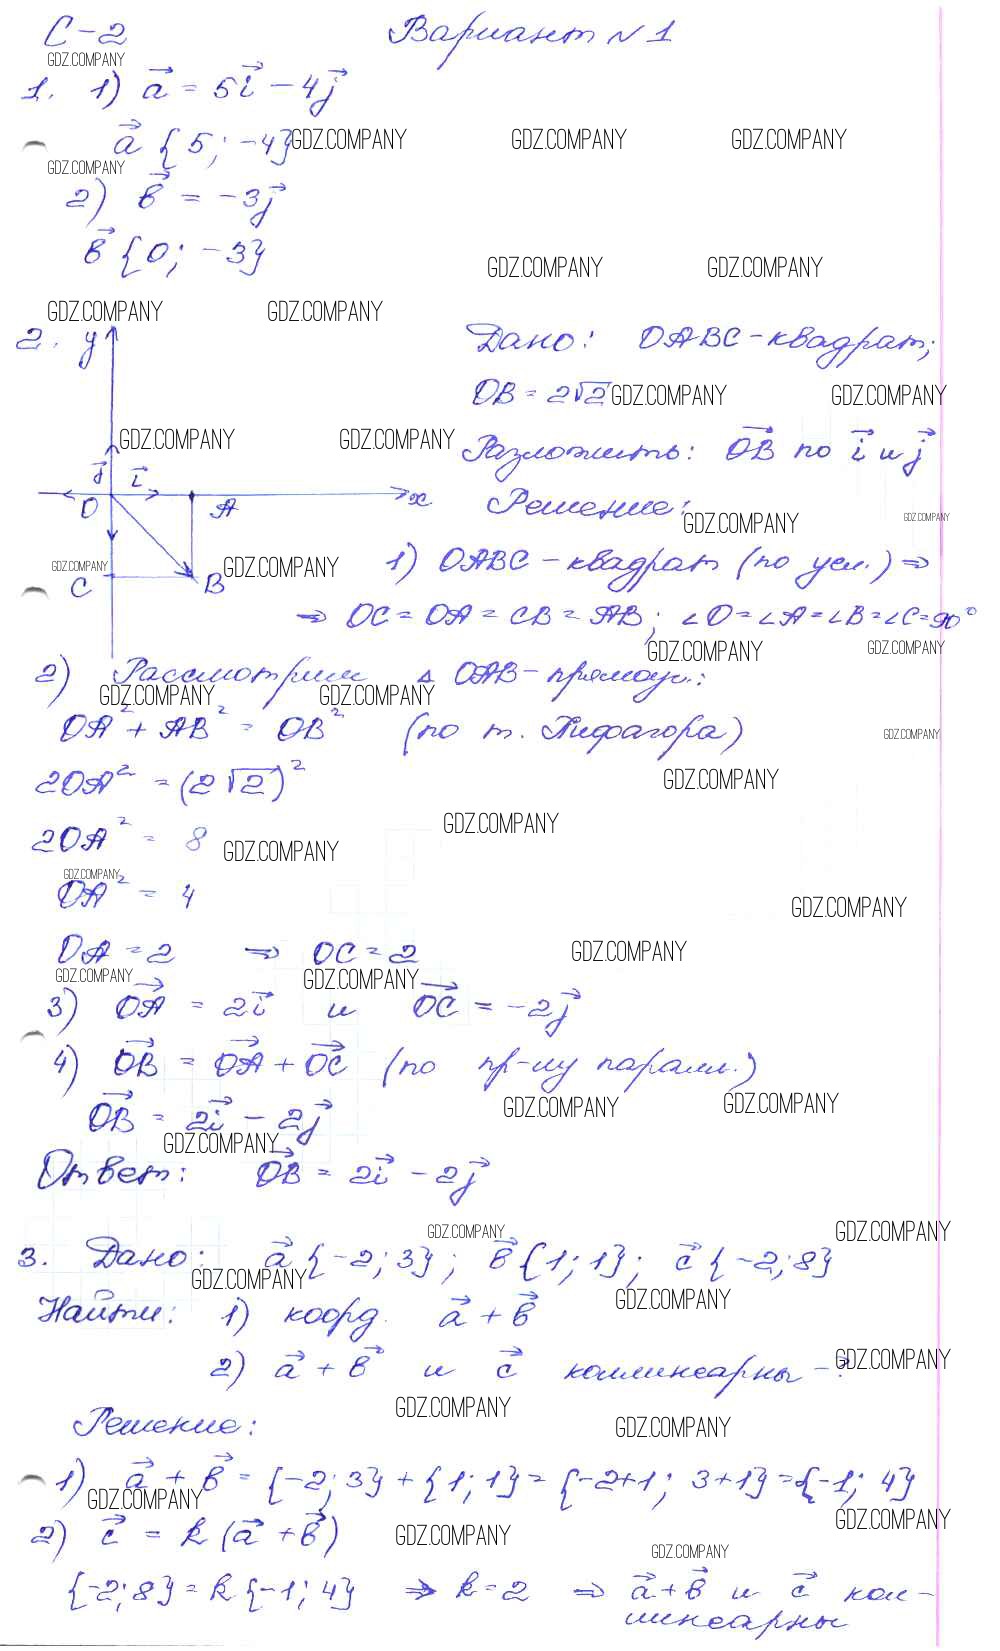 С-2 Вариант №1
GDZ.COMPANY
1. 1) a⃗ = 5i⃗ - 4j⃗
a⃗ {5; -4} GDZ.COMPANY GDZ.COMPANY GDZ.COMPANY
GDZ.COMPANY
2) b⃗ = -3j⃗
b⃗ {0; -3}
GDZ.COMPANY GDZ.COMPANY
GDZ.COMPANY GDZ.COMPANY
2. y Дано: OABC - квадрат;
OB = 2√2 GDZ.COMPANY GDZ.COMPANY
GDZ.COMPANY GDZ.COMPANY
Разложить: OB⃗ по i⃗ и j⃗
j⃗ i⃗
O A x Решение:
GDZ.COMPANY GDZ.COMPANY
GDZ.COMPANY GDZ.COMPANY
1) OABC - квадрат (по усл.) ⇒
C B
⇒ OC = OA = CB = AB; ∠O = ∠A = ∠B = ∠C = 90°
GDZ.COMPANY GDZ.COMPANY
2) Рассмотрим △ OAB - прямоуг.:
GDZ.COMPANY GDZ.COMPANY
OA² + AB² = OB² (по т. Пифагора)
GDZ.COMPANY
2OA² = (2√2)²
GDZ.COMPANY
GDZ.COMPANY
2OA² = 8
GDZ.COMPANY
GDZ.COMPANY
OA² = 4
GDZ.COMPANY
OA = 2 ⇒ OC = 2
GDZ.COMPANY
GDZ.COMPANY GDZ.COMPANY
3) OA⃗ = 2i⃗ и OC⃗ = -2j⃗
4) OB⃗ = OA⃗ + OC⃗ (по пр-лу паралл.)
GDZ.COMPANY GDZ.COMPANY
OB⃗ = 2i⃗ - 2j⃗
GDZ.COMPANY
Ответ: OB⃗ = 2i⃗ - 2j⃗
GDZ.COMPANY GDZ.COMPANY
3. Дано: a⃗ {-2; 3}; b⃗ {1; 1}; c⃗ {-2; 8}
GDZ.COMPANY
GDZ.COMPANY
Найти: 1) коорд. a⃗ + b⃗
2) a⃗ + b⃗ и c⃗ коллинеарны - ?
GDZ.COMPANY
GDZ.COMPANY
Решение:
GDZ.COMPANY
1) a⃗ + b⃗ = {-2; 3} + {1; 1} = {-2+1; 3+1} = {-1; 4}
GDZ.COMPANY
GDZ.COMPANY
2) c⃗ = k (a⃗ + b⃗)
GDZ.COMPANY
GDZ.COMPANY
{-2; 8} = k {-1; 4} ⇒ k = 2 ⇒ a⃗ + b⃗ и c⃗ кол-
линеарны